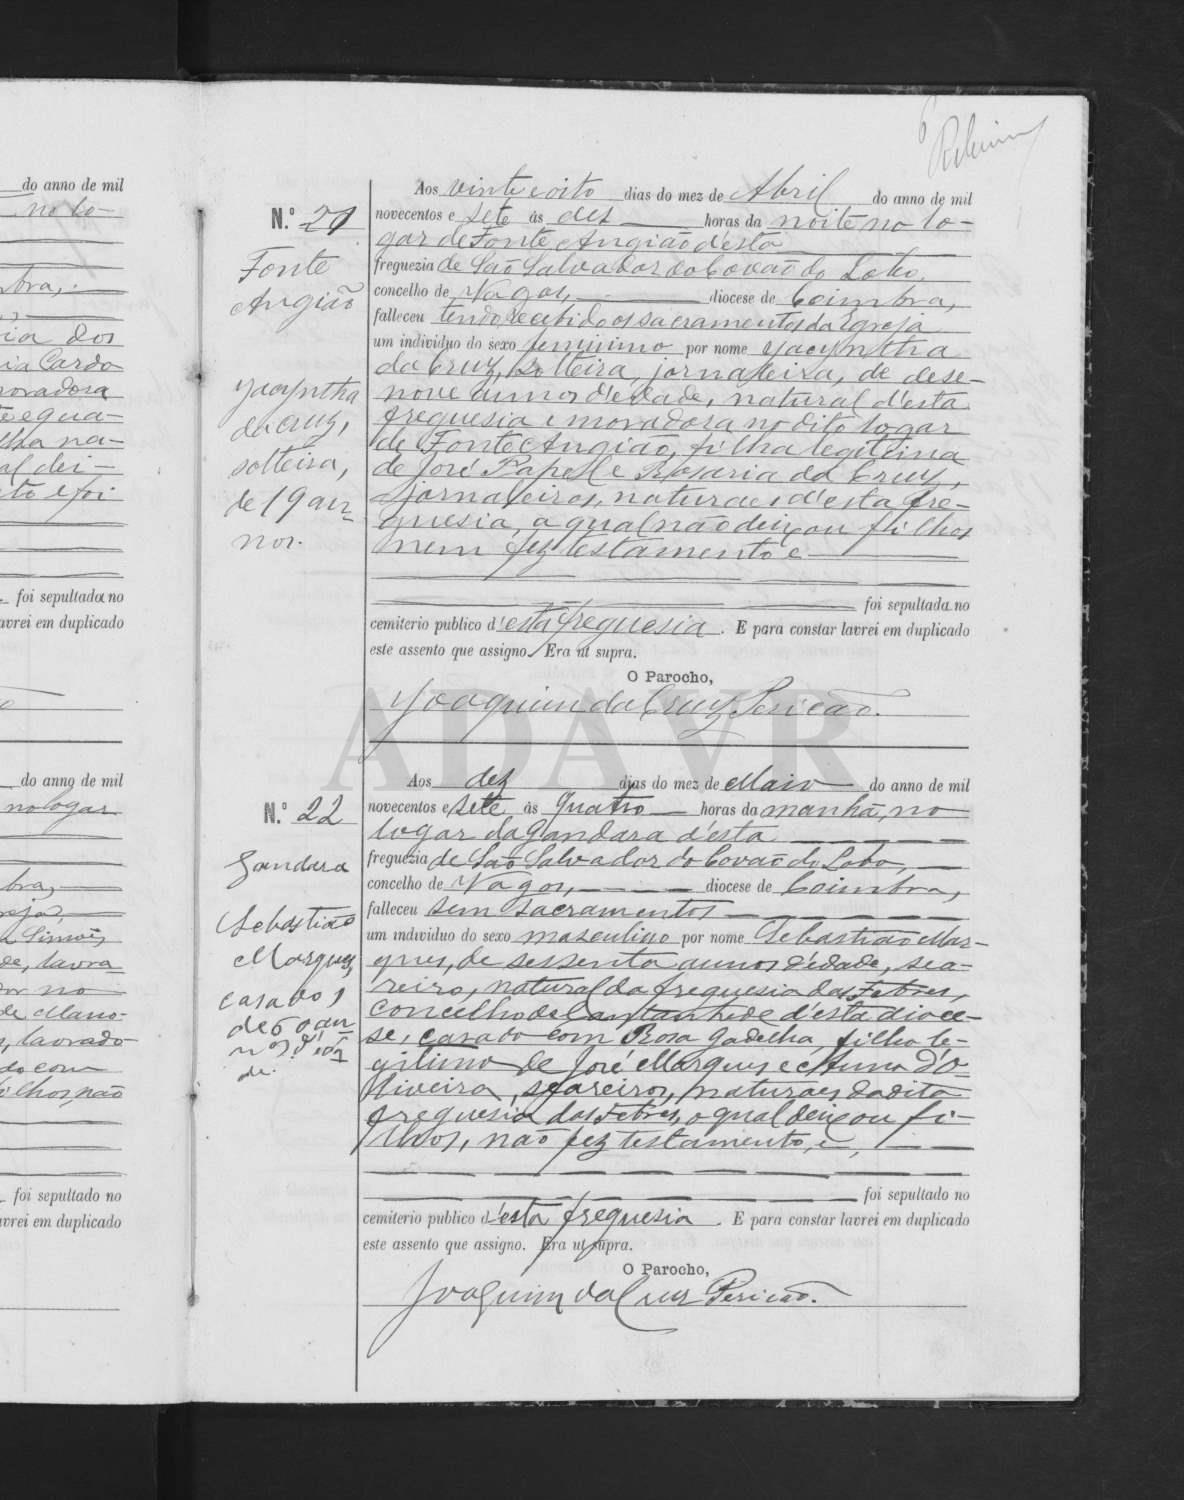 do anno de mil
no lo-
bra,
ia dos
ia Cardo
moradora
te e qua-
lha na-
al dei-
to e foi
foi sepultada no
avrei em duplicado
do anno de mil
no logar
bra,
reja,
Simões
de, lavra
or no
de Mano-
s, lavrado
do com
filhos, não
foi sepultado no
avrei em duplicado
6
N.º 21
Fonte
Angião
Jacyntha
da Cruz,
solteira,
de 19 an-
nos.
Aos vinte e oito dias do mez de Abril do anno de mil
novecentos e sete ás dez horas da noite no lo-
gar de Fonte Angião d'esta
freguezia de São Salvador do Covão do Lobo,
concelho de Vagos, diocese de Coimbra,
falleceu tendo recebido os sacramentos da Egreja
um individuo do sexo feminino por nome Jacyntha
da Cruz, solteira, jornaleira, de dese-
nove annos d'edade, natural d'esta
freguesia e moradora no dito logar
de Fonte Angião, filha legitima
de José Papel e Rosaria da Cruz,
jornaleiros, naturaes d'esta fre-
guesia, a qual não deixou filhos
nem fez testamento e
foi sepultada no
cemiterio publico d'esta freguesia. E para constar lavrei em duplicado
este assento que assigno. Era ut supra.
O Parocho,
Joaquim da Cruz Pericão.
ADAVR
N.º 22
Gandara
Sebastião
Marques,
casado,
de 60 an-
nos d'eda-
de.
Aos dez dias do mez de Maio do anno de mil
novecentos e sete ás quatro horas da manhã, no
logar da Gandara d'esta
freguezia de São Salvador do Covão do Lobo,
concelho de Vagos, diocese de Coimbra,
falleceu sem sacramentos
um individuo do sexo masculino por nome Sebastião Mar-
ques, de sessenta annos d'edade, sea-
reiro, natural da freguesia das Febres,
concelho de Cantanhede d'esta dioce-
se, casado com Rosa Gadelha, filho le-
gitimo de José Marques e Anna d'O-
liveira, seareiros, naturaes da dita
freguesia das Febres, o qual deixou fi-
lhos, não fez testamento, e,
foi sepultado no
cemiterio publico d'esta freguesia. E para constar lavrei em duplicado
este assento que assigno. Era ut supra.
O Parocho,
Joaquim da Cruz Pericão.